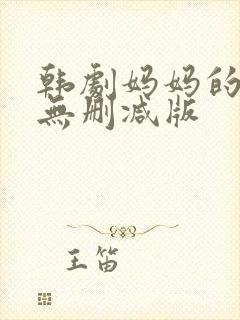 韩劇妈妈的
無删减版
王笛